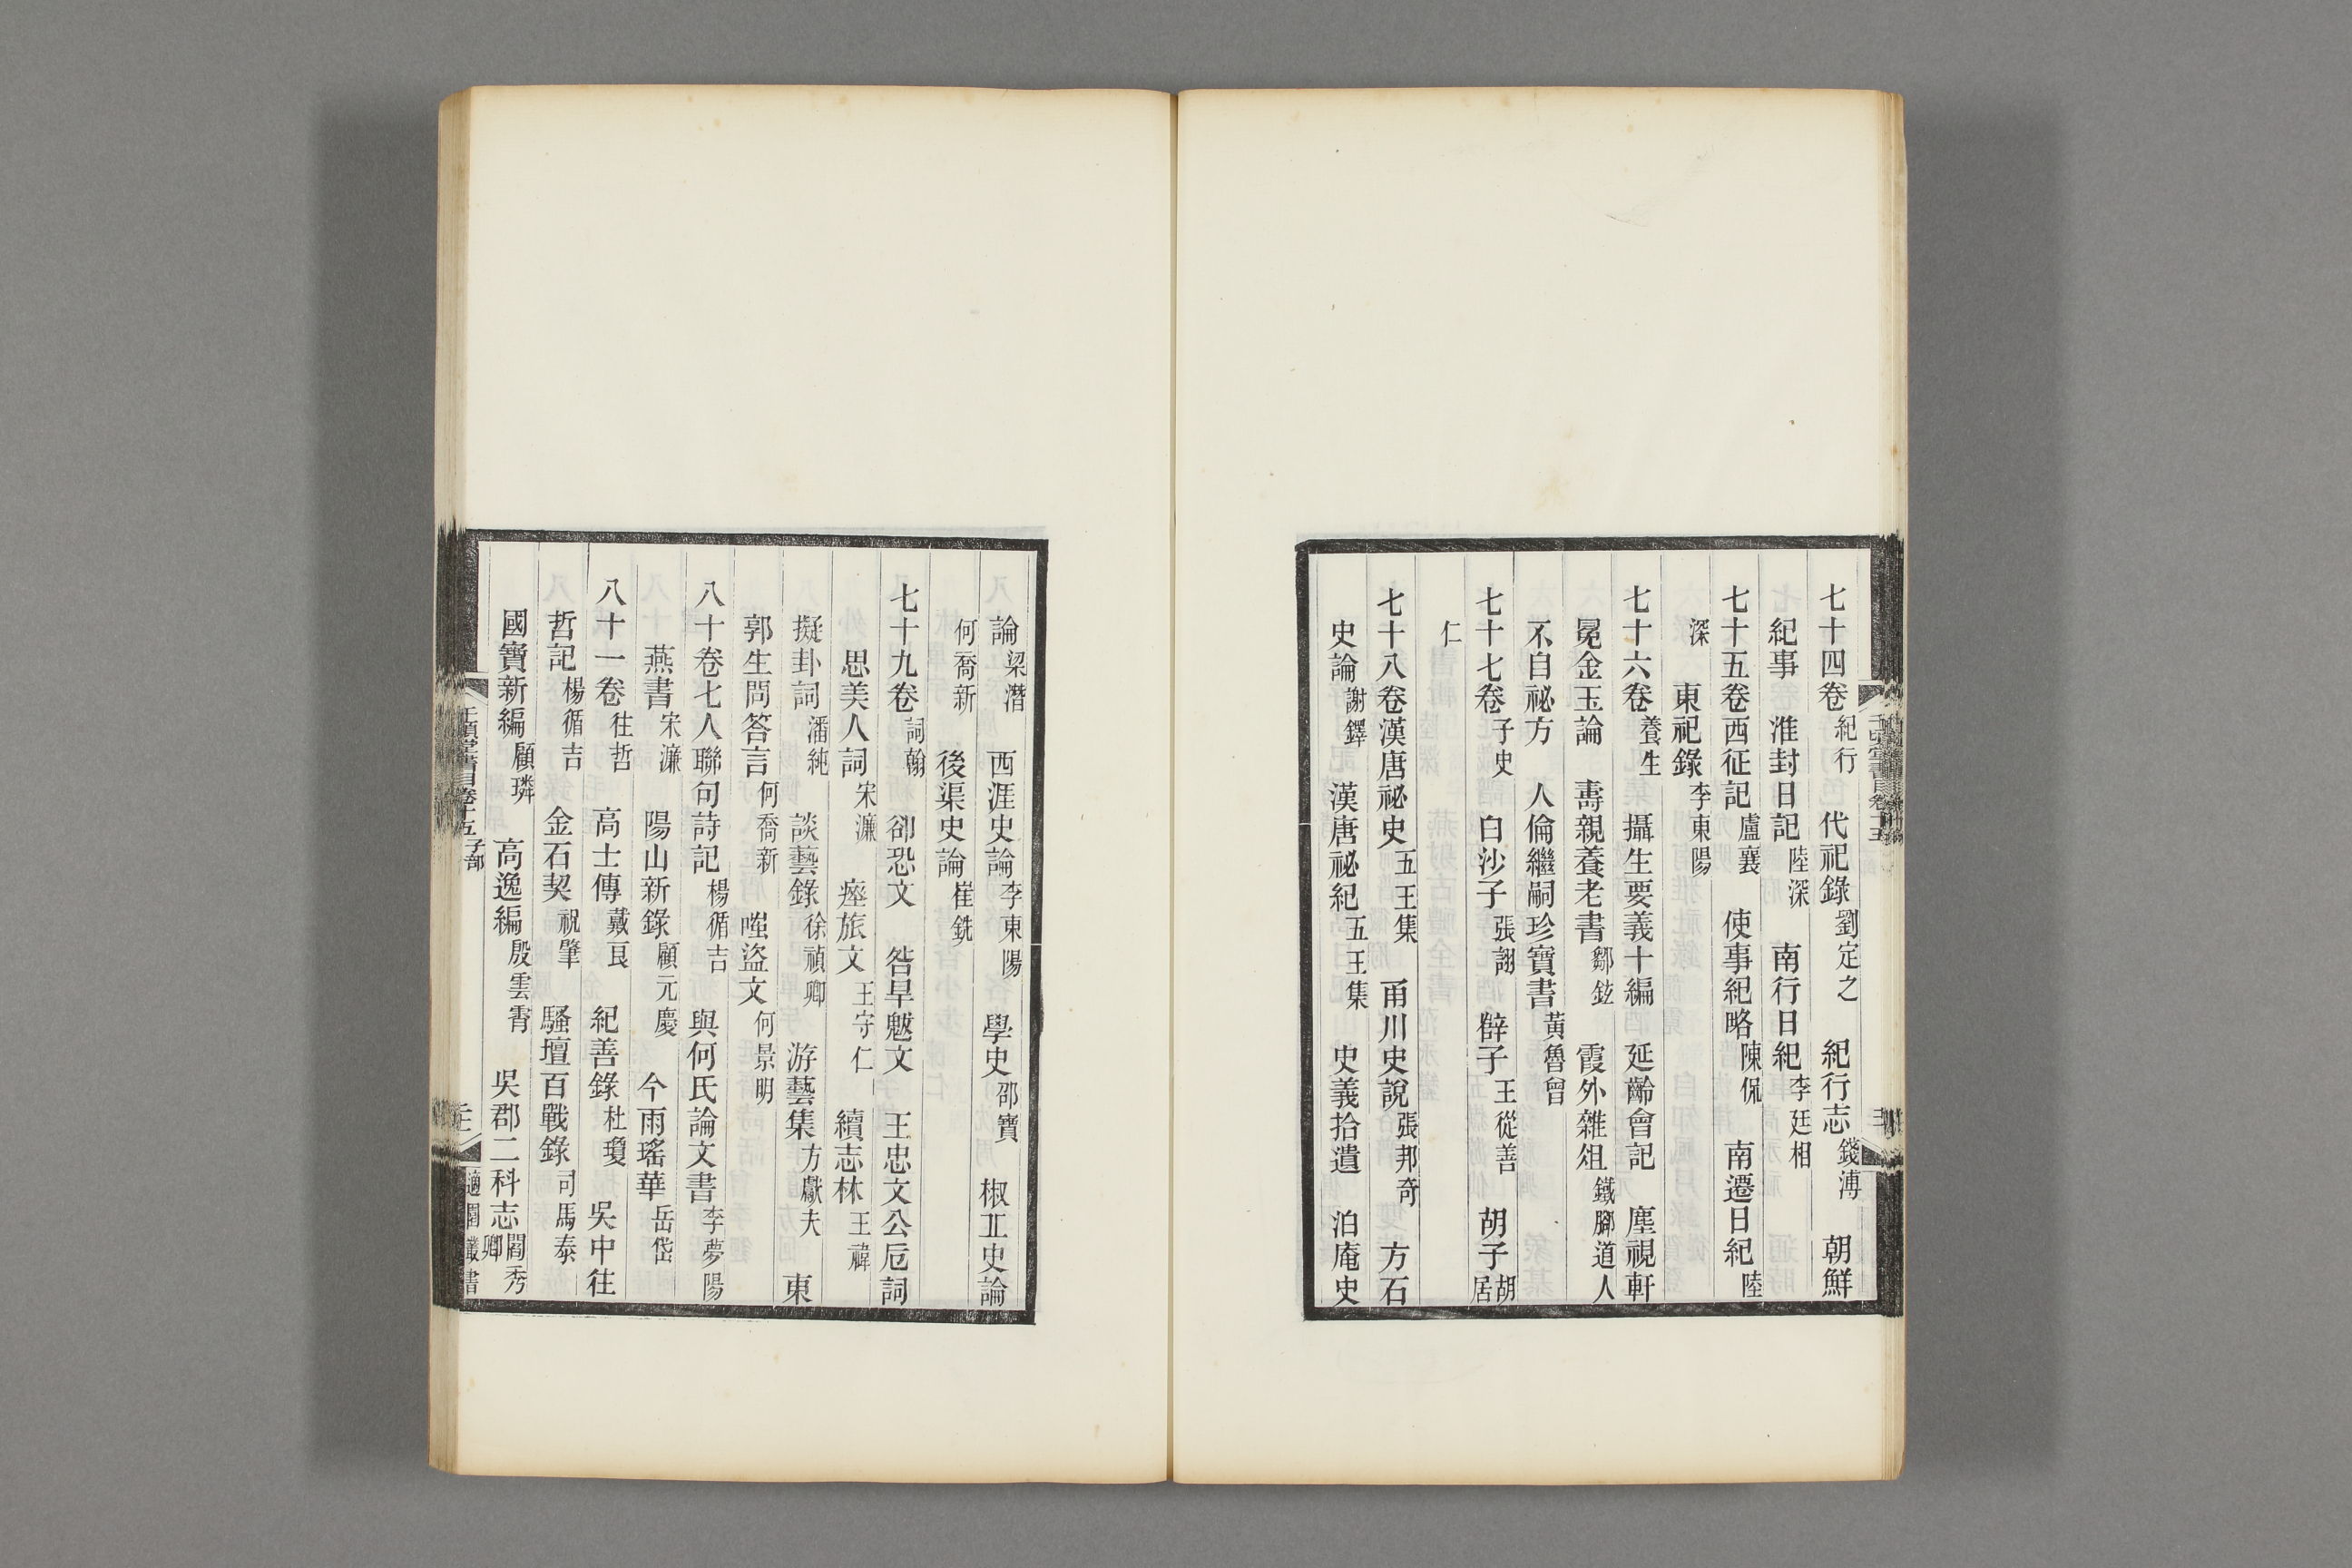 七十四卷紀行　代祀錄劉定之　紀行志錢溥　朝鮮
紀事　淮封日記陸深　南行日紀李廷相
七十五卷西征記盧襄　使事紀略陳侃　南遷日紀陸
深　東祀錄李東陽
七十六卷養生　攝生要義十編　延齡會記　塵視軒
冕金玉論　壽親養老書鄒鉉　霞外雜俎鐵腳道人
不自祕方　人倫繼嗣珍寶書黃魯曾
七十七卷子史　白沙子張詡　辥子王從善　胡子胡居
仁
七十八卷漢唐祕史五王集　甬川史說張邦奇　方石
史論謝鐸　漢唐祕紀五王集　史義拾遺　泊庵史
論梁潛　西涯史論李東陽　學史邵寶　椒丘史論
何喬新　後渠史論崔銑
七十九卷詞翰　卻恐文　咎旱魃文　王忠文公卮詞
思美人詞宋濂　瘞旅文王守仁　續志林王禕
擬卦詞潘純　談藝錄徐禎卿　游藝集方獻夫　東
郭生問答言何喬新　嗤盜文何景明
八十卷七人聯句詩記楊循吉　與何氏論文書李夢陽
燕書宋濂　陽山新錄顧元慶　今雨瑤華岳岱
八十一卷往哲　高士傳戴良　紀善錄杜瓊　吳中往
哲記楊循吉　金石契祝肇　騷壇百戰錄司馬泰
國寶新編顧璘　高逸編殷雲霄　吳郡二科志閻秀卿
千頃堂書目卷十五　子部
適園叢書